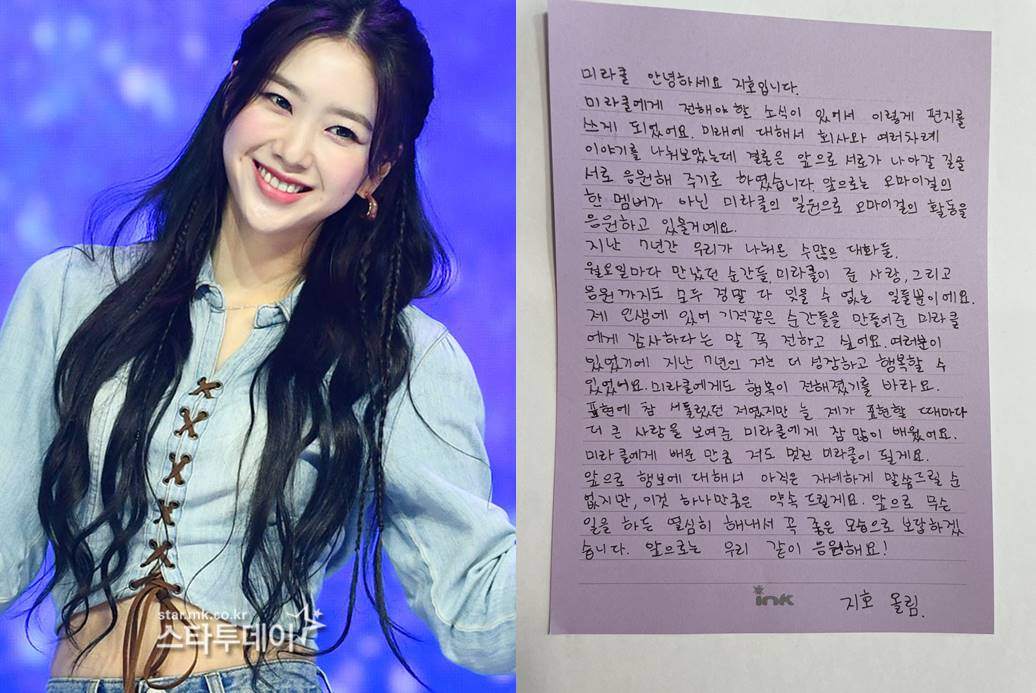 star.mk.co.kr
스타투데이
미라클 안녕하세요 지호입니다.
미라클에게 전해야할 소식이 있어서 이렇게 편지를
쓰게 되었어요. 미래에 대해서 회사와 여러차례
이야기를 나눠보았는데 결론은 앞으로 서로가 나아갈 길을
서로 응원해 주기로 하였습니다. 앞으로는 오마이걸의
한 멤버가 아닌 미라클의 일원으로 오마이걸의 활동을
응원하고 있을거예요.
지난 7년간 우리가 나눠온 수많은 대화들,
월요일마다 만났던 순간들, 미라클이 준 사랑, 그리고
응원까지도 모두 정말 다 잊을 수 없는 일들뿐이예요.
제 인생에 있어 기적같은 순간들을 만들어준 미라클
에게 감사하다는 말 꼭 전하고 싶어요. 여러분이
있었기에 지난 7년의 저는 더 성장하고 행복할 수
있었어요. 미라클에게도 행복이 전해졌기를 바라요.
표현에 참 서툴렀던 저였지만 늘 제가 표현할 때마다
더 큰 사랑을 보여준 미라클에게 참 많이 배웠어요.
미라클에게 배운 만큼 저도 멋진 미라클이 될게요.
앞으로 행보에 대해서 아직은 자세하게 말씀드릴 순
없지만, 이것 하나만큼은 약속 드릴게요. 앞으로 무슨
일을 하든 열심히 해내서 꼭 좋은 모습으로 보답하겠
습니다. 앞으로는 우리 같이 응원해요!
ink
지호 올림.